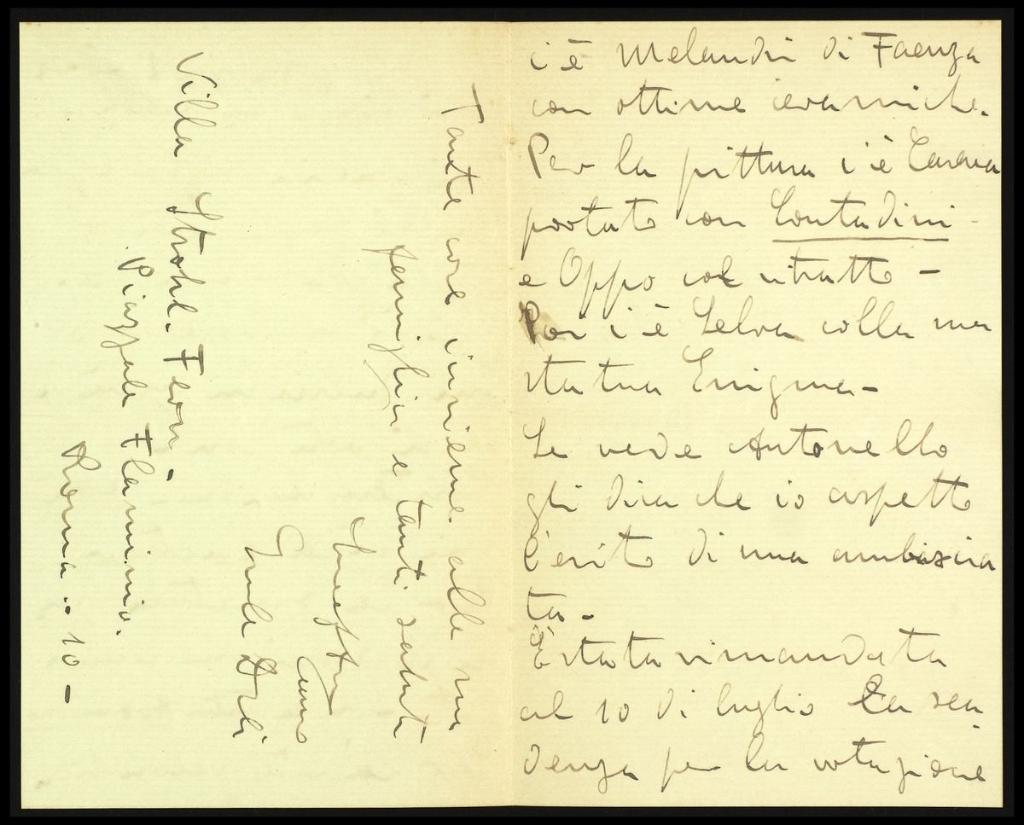 c'è Melandri di Faenza
con ottime ceramiche.
Per la pittura c'è
portato con Contadini
e Oppo col ritratto -
Poi c'è Selva colla sua
statua Enigma -
Se vede Antonello
gli dica che io aspetto
l'esito di una ambascia
ta -
È stata rimandata
al 10 di luglio La sca
denza per la votazione
Tante cose insieme alla sua
famiglia e tanti saluti
Villa Strohl-Fern -
Piazzale Flaminio.
Roma - 10 -